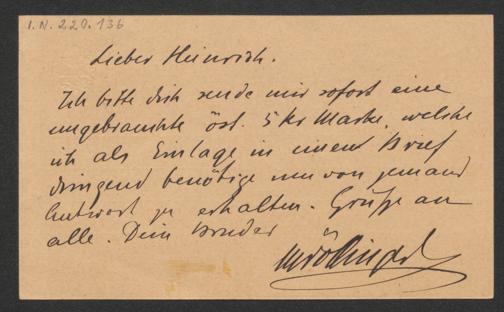 I.N. 220.136
Lieber Heinrich.
Ich bitte dich sende mir sofort eine
ungebrauchte öst. 5 Kr Marke, welche
ich als Einlage in einem Brief
dringend benötige um von jemand
Antwort zu erhalten. Grüße an
alle. Dein Bruder